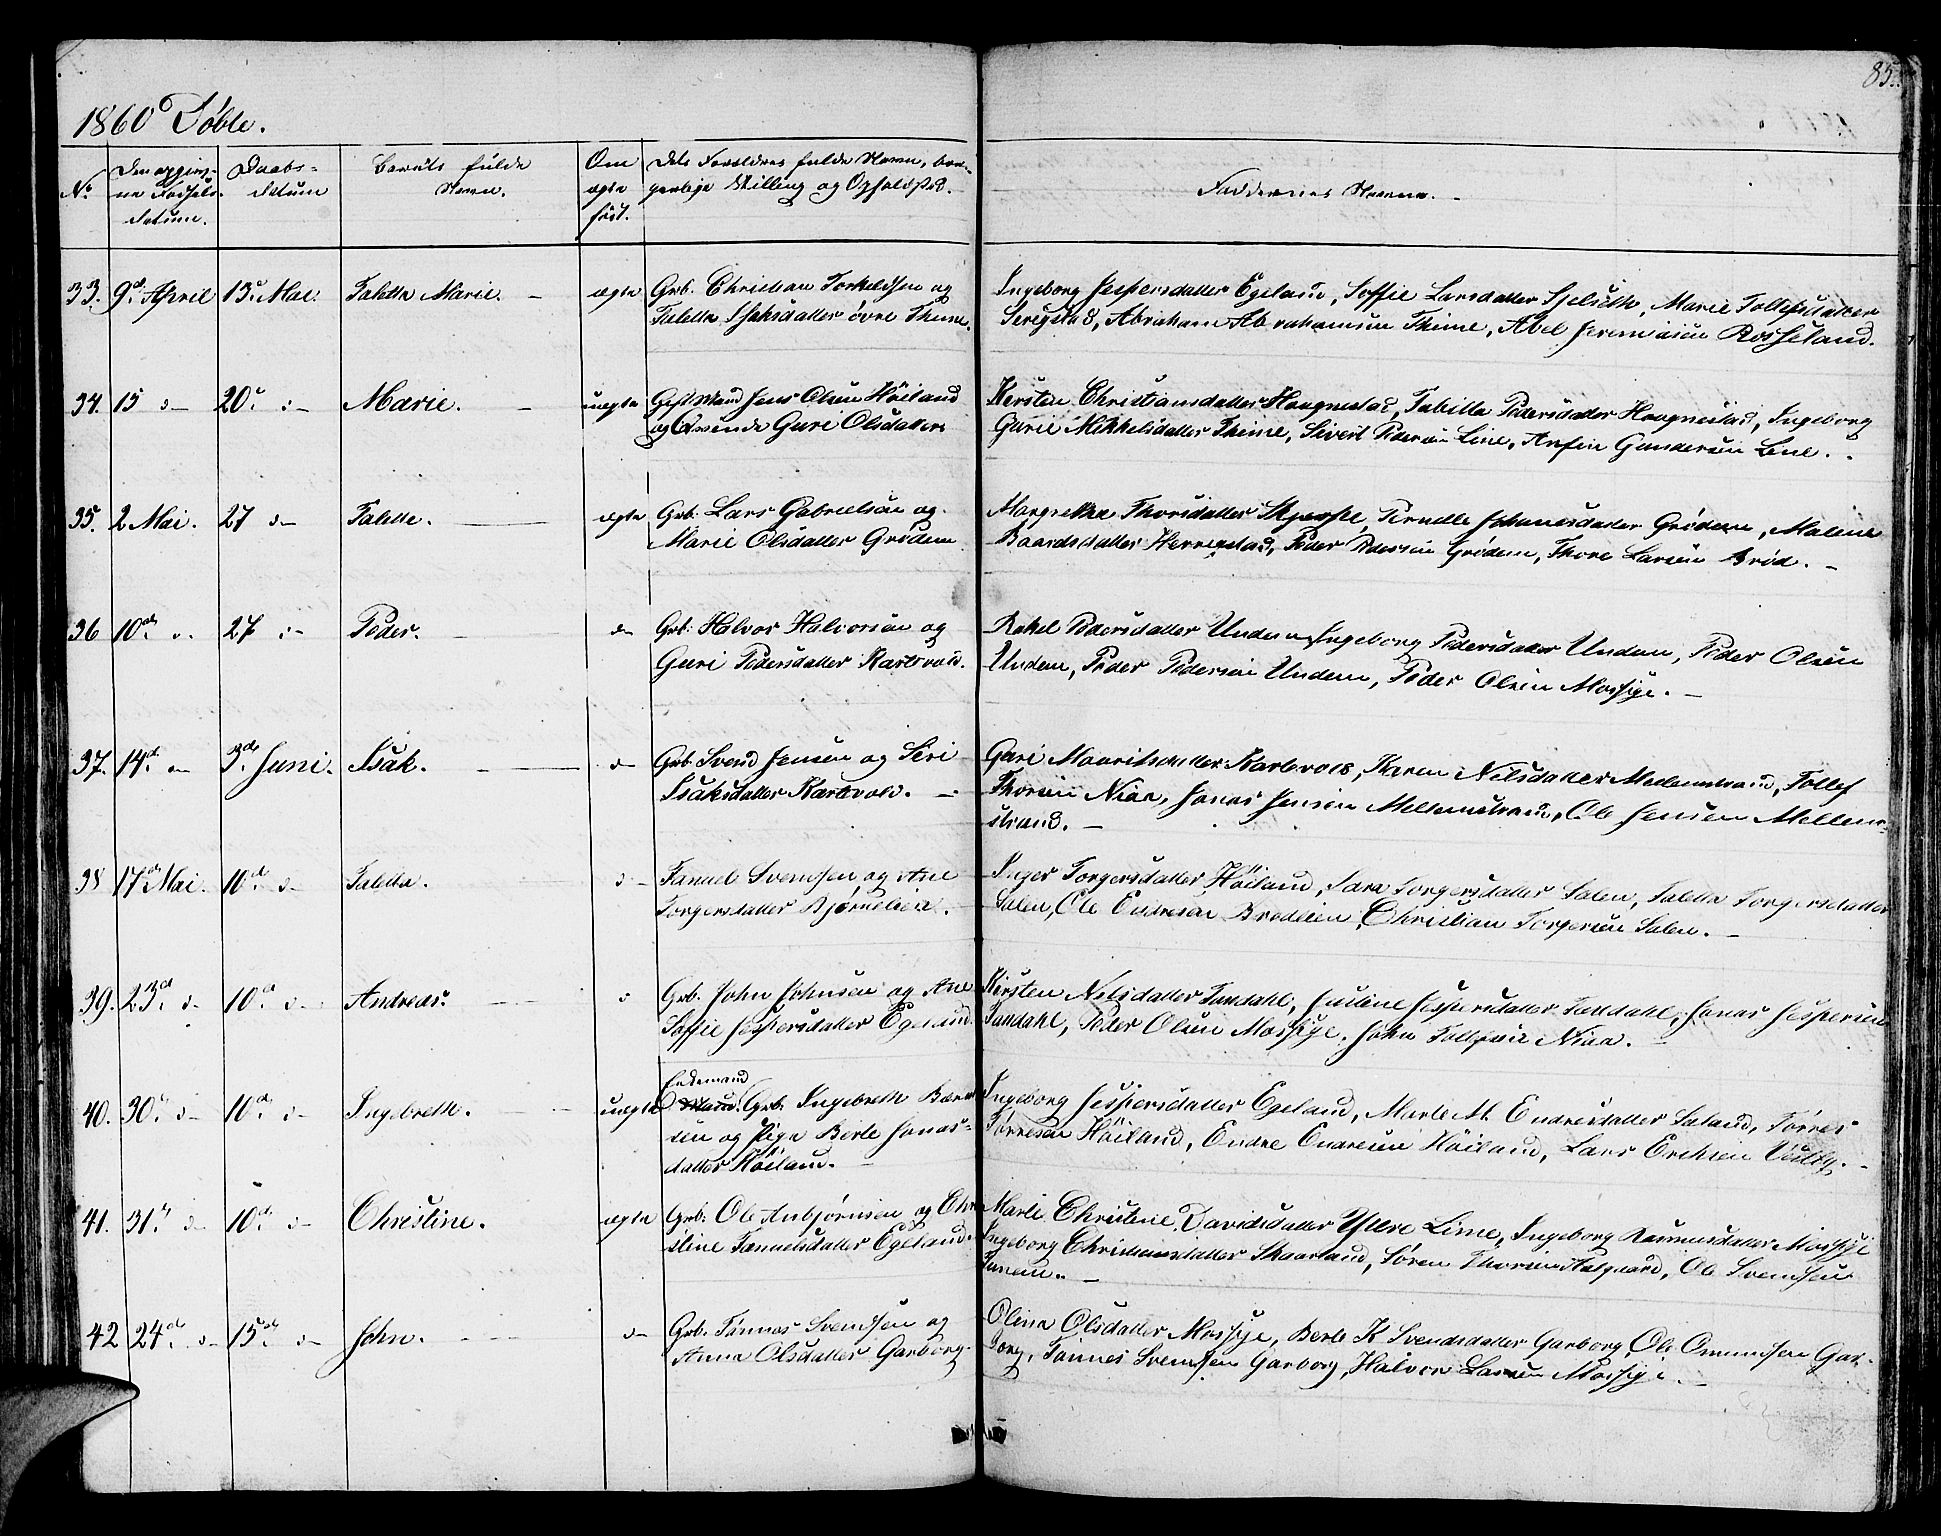 85.
1860 Døbte.
No
Den opgivne Fødsels-datum.
Daabs-datum
Barnets fulde Navn.
Om ægte født.
Dets Forældres fulde Navn, borgerlige Stilling og Opholdssted.
Faddernes Navne.
33. 9d. April 13d. Mai. Taletta Marie. ægte Grb. Christian Torkeldsen og
Taletta Isaksdatter øvre Thime.
Ingeborg Jespersdatter Egeland, Soffie Larsdatter Sjelseth, Marie Tollefsdatter
Serigstad, Abraham Abrahamsen Thime, Abel Jeremiasen Rosseland.
34. 15 d— 20d. d— Marie. uægte Gift Mand Jens Olsen Höiland
og Qvinde Guri Olsdatter
Kersten Christiansdatter Haagnestad, Tabitta Pedersdatter Haagnestad, Ingeborg
Gurie Mikkelsdatter Thime, Sivert Pedersen Line, Arfin Gundersen Lene.
35. 2 Mai. 27 d— Talette. ægte Grb. Lars Gabrielsen og
Marie Olsdatter Grödem
Margretha Thorsdatter Skjerpe, Pernelle Johannesdatter Grödem, Malene
Baardsdatter Herregstad, Peder Pedersen Grödem, Thore Larsen Brød.
36 10de d. 27 d— Peder. d— Grb. Halvor Halvorsen og
Guri Pedersdatter Kartevold.
Rakel Pedersdatter Undem, Ingeborg Pedersdatter Undem, Peder Olsen
Undem, Peder Pedersen Undem, Peder Olsen Mossige.
37. 14d. d— 3de Juni. Isak. d— Grb. Svend Jensen og Siri
Isaksdatter Kartevold.
Guri Mauritsdatter Kartevold, Karen Nilsdatter Mellemstrand, Tollef
Thorsen Niaa, Jonas Jensen Mellemstrand, Ole Jensen Mellem-
strand.
38 17de Mai. 10d. d— Taletta. d— Tanuel Svendsen og Ane
Torgersdatter Bjørnelien.
Inger Torgersdatter Höiland, Sara Torgersdatter Salen, Taletta Torgersdatter
Salen, Ole Endresen Brødlien, Christian Torgersen Salen.
39. 23d. d— 10d. d— Andreas. d Grb. John Johnsen og Ane
Soffie Jespersdatter Egeland.
Kirsten Nilsdatter Taxdahl, Justine Jespersdatter Taxdahl, Jonas Jespersen
Taxdahl, Peder Olsen Mossige, John Tollefsen Niaa.
40. 30d. d— 10d. d— Ingebreth. uægte Enkemand
Grb. Ingebreth Baard-
sen og Pige Berte Jonas-
datter Höiland.
Ingeborg Jespersdatter Egeland, Marte M. Endresdatter Saland, Tørres
Tørresen Höiland, Endre Endresen Höiland, Lars Erichsen Vestly.
41. 31d. d— 10d. d— Christine. ægte Grb. Ole Anbjørnsen og Chri-
stine Tanuelsdatter Egeland.
Marte Christene Davidsdatter Yttre Lime, Ingeborg Rasmusdatter Mossige
Ingeborg Christiansdatter Skaarland, Søren Thorsen Aalgaard, Ole Svendsen
Tunem.
42 24d. d— 15de d— John. d— Grb. Tønnes Svendsen og
Anna Olsdatter Garborg.
Olina Olsdatter Mossige, Berte K Svendsdatter Garborg, Ole Omundsen Gar-
borg, Tønnes Svendsen Garborg, Halvor Larsen Mossige.